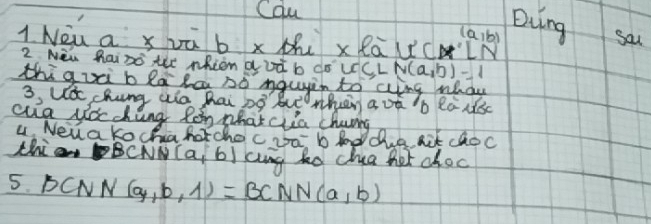 Câu Đúng sai
1 Nếu a ⋮ x và b ⋮ x thì x là ƯCLN (a,b)
2. Nếu hai số tự nhiên a và b có ƯCLN(a,b) = 1
thì a và b là hai số nguyên tố cùng nhau
3, Ước chung của hai số tự nhiên a và b là ước
của ước chung lớn nhất của chúng
4. Nếu a ko chia hết cho c và b ko chia hết cho c
thì BCNN(a,b) cũng ko chia hết cho c
5. BCNN(a,b,1) = BCNN(a,b)